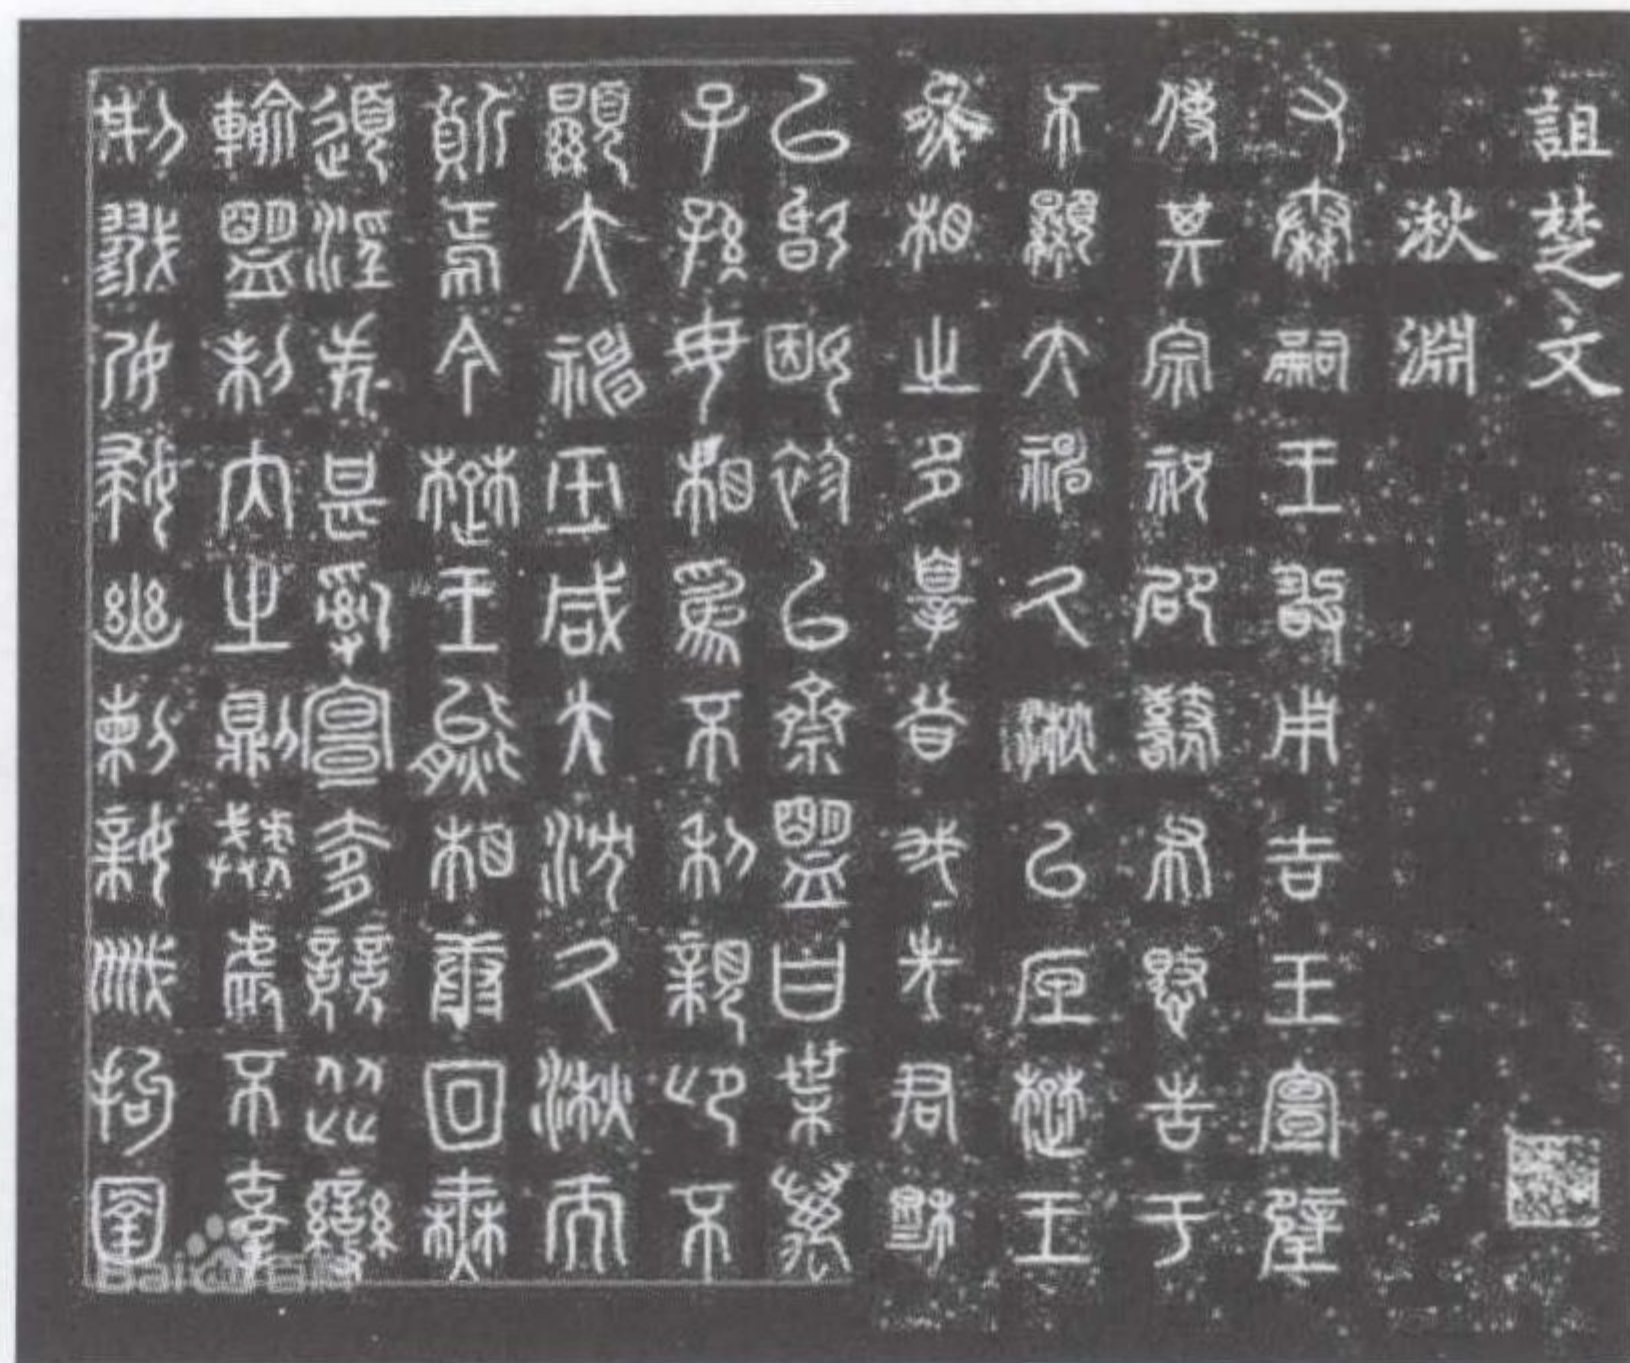 詛楚文
湫淵
又秦嗣王敢用吉玉宣璧
使其宗祝邵鼛布憼告于
不顯大神久湫以底楚王
熊相之多辠昔我先君穆
以婚姻袗以齋盟曰枼萬
子孫毋相為不利親卬不
顯大神巫咸大沈久湫而
質焉今楚王熊相康回無
道淫失甚亂宣奓競從變
輸盟制內之則暴虐不辜
刑戮孕婦幽刺親戚拘圉
Baidu百科